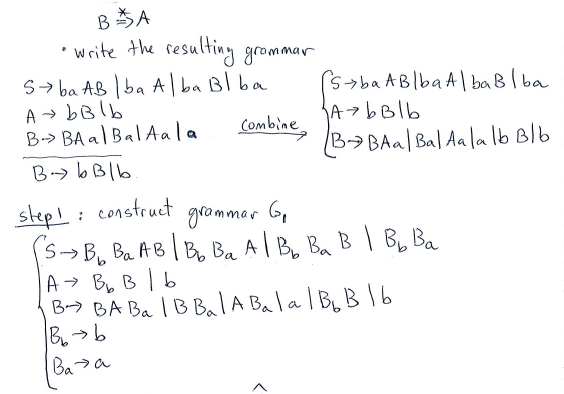 B ⇒* A
• write the resulting grammar
S → baAB | baA | baB | ba
A → bB | b
B → BAa | Ba | Aa | a
B → bB | b
combine →
S → baAB | baA | baB | ba
A → bB | b
B → BAa | Ba | Aa | a | bB | b
step1 : construct grammar G₁
S → B_b B_a AB | B_b B_a A | B_b B_a B | B_b B_a
A → B_b B | b
B → BA B_a | B B_a | A B_a | a | B_b B | b
B_b → b
B_a → a
^